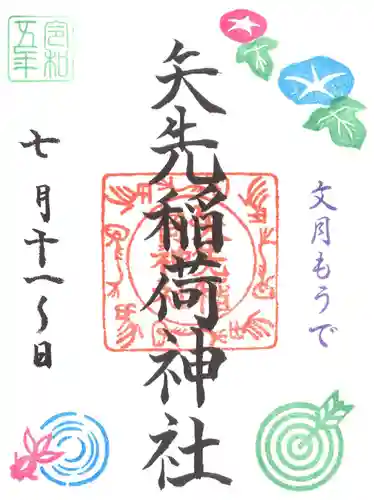 文月もうで
矢先稲荷神社
令和
五年
七月十一〜日